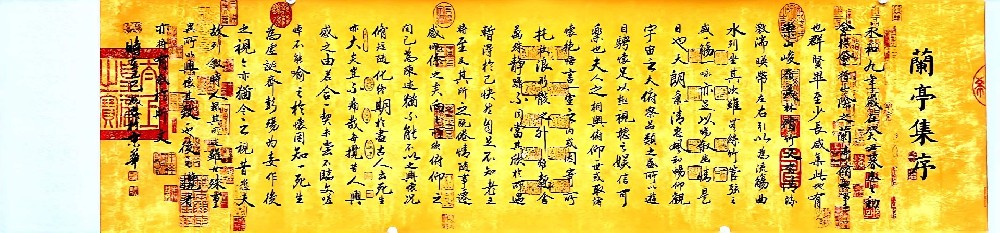 蘭亭集序
永和九年歲在癸丑暮春之初
會於會稽山陰之蘭亭修禊事
也群賢畢至少長咸集此地有
崇山峻嶺茂林修竹又有清流
激湍映帶左右引以為流觴曲
水列坐其次雖無絲竹管弦之
盛一觴一詠亦足以暢敘幽情是
日也天朗氣清惠風和暢仰觀
宇宙之大俯察品類之盛所以遊
目騁懷足以極視聽之娛信可
樂也夫人之相與俯仰一世或取諸
懷抱悟言一室之內或因寄所
托放浪形骸之外雖趣舍
萬殊靜躁不同當其欣於所遇
暫得於己快然自足不知老之
將至及其所之既倦情隨事遷
感慨係之矣向之所欣俯仰之
間已為陳跡猶不能不以之興懷況
修短隨化終期於盡古人云死生
亦大矣豈不痛哉每攬昔人興
感之由若合一契未嘗不臨文嗟
悼不能喻之於懷固知一死生
為虛誕齊彭殤為妄作後
之視今亦猶今之視昔悲夫
故列敘時人錄其所述雖世殊事
異所以興懷其致一也後之攬者
亦將有感於斯文